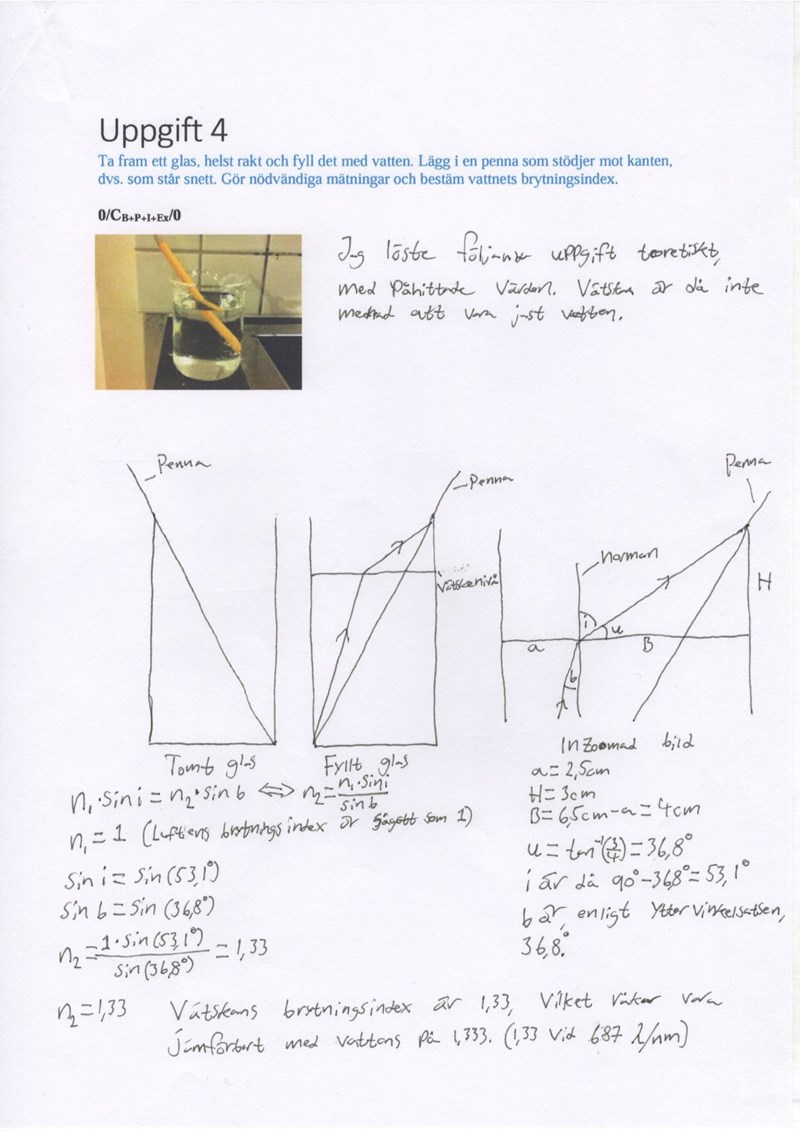 Uppgift 4
Ta fram ett glas, helst rakt och fyll det med vatten. Lägg i en penna som stödjer mot kanten,
dvs. som står snett. Gör nödvändiga mätningar och bestäm vattnets brytningsindex.
0/C_B+P+I+Ex/0
Jag löste följande uppgift teoretiskt,
med påhittade värden. Vätskan är då inte
menad att vara just vatten.
Penna
Penna
Vätskenivå
Penna
Normalen
H
i
u
a
B
b
Tomt glas
Fyllt glas
Inzoomad bild
n₁·sin i = n₂·sin b ⟺ n₂ = n₁·sin i / sin b
n₁ = 1 (Luftens brytningsindex är som 1)
sin i = sin(53,1°)
sin b = sin(36,8°)
n₂ = 1·sin(53,1°) / sin(36,8°) = 1,33
a = 2,5cm
H = 3cm
B = 6,5cm-a = 4cm
u = tan⁻¹(3/4) = 36,8°
i är då 90°-36,8° = 53,1°
b är, enligt Yttervinkelsatsen,
36,8°.
n₂ = 1,33 Vätskans brytningsindex är 1,33, vilket råkar vara
jämförbart med vattens på 1,333. (1,33 vid 687 λ/nm)